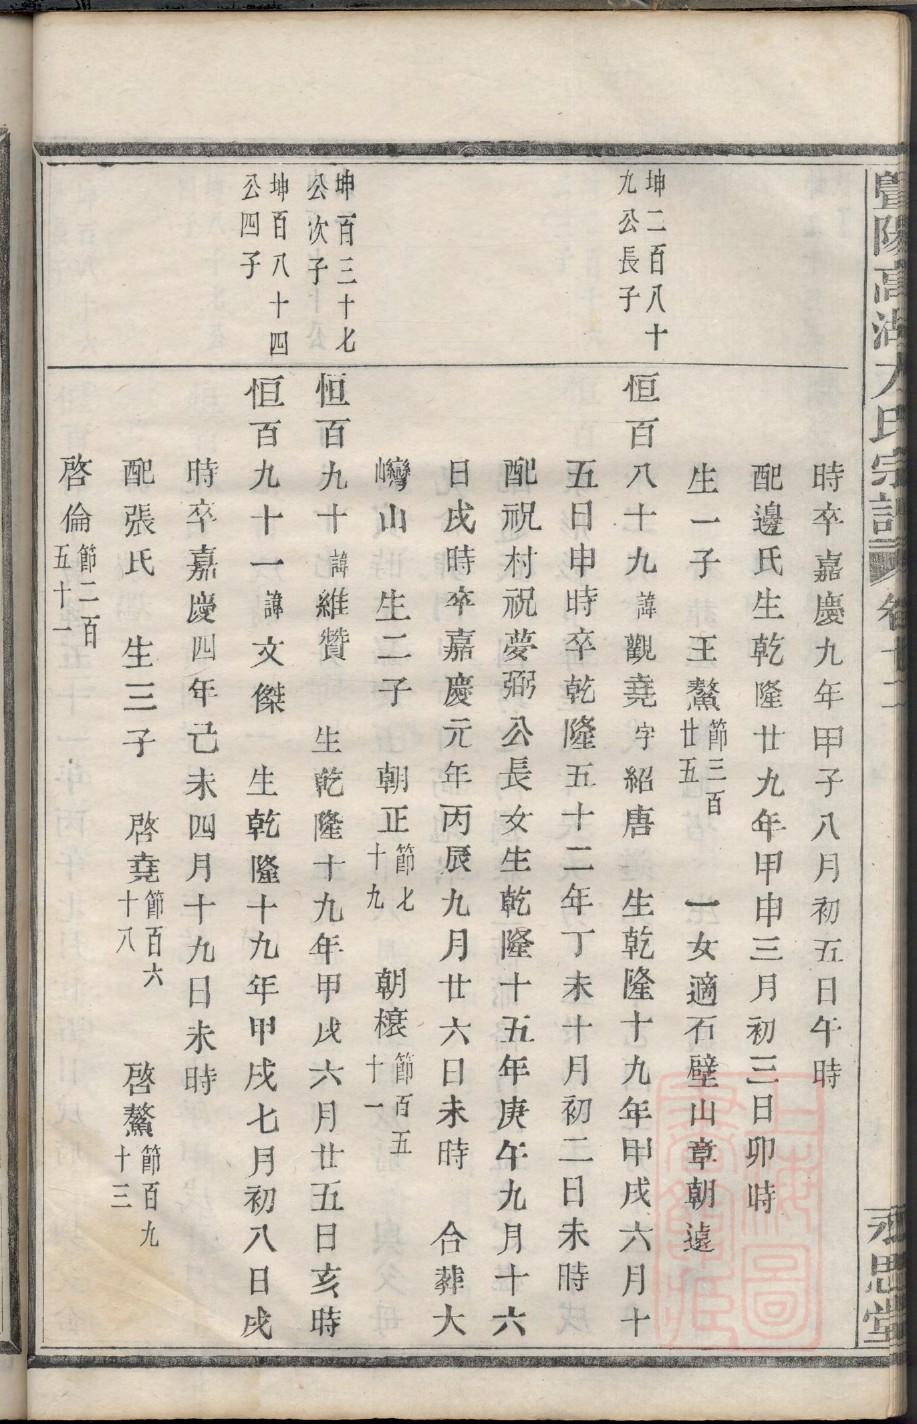 暨陽高湖方氏宗譜 卷十二 永思堂
時卒嘉慶九年甲子八月初五日午時
配邊氏生乾隆廿九年甲申三月初三日卯時
生一子 王鰲節三百廿五 一女適石壁山章朝遠
坤二百八十九公長子
恒百八十九諱觀堯字紹唐 生乾隆十九年甲戌六月十
五日申時卒乾隆五十二年丁未十月初二日未時
配祝村祝夢弼公長女生乾隆十五年庚午九月十六
日戌時卒嘉慶元年丙辰九月廿六日未時 合葬大
巒山 生二子 朝正節七十九 朝榱節百五十一
坤百三十七公次子
恒百九十諱維贊 生乾隆十九年甲戌六月廿五日亥時
坤百八十四公四子
恒百九十一諱文傑 生乾隆十九年甲戌七月初八日戌
時卒嘉慶四年己未四月十九日未時
配張氏 生三子 啓堯節百六十八 啓鰲節百九十三
啓倫節二百五十一